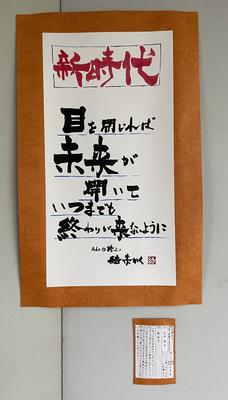 新時代
目を閉じれば
未来が
開いて
いつまでも
終わりが来ないように
Adoの詩より